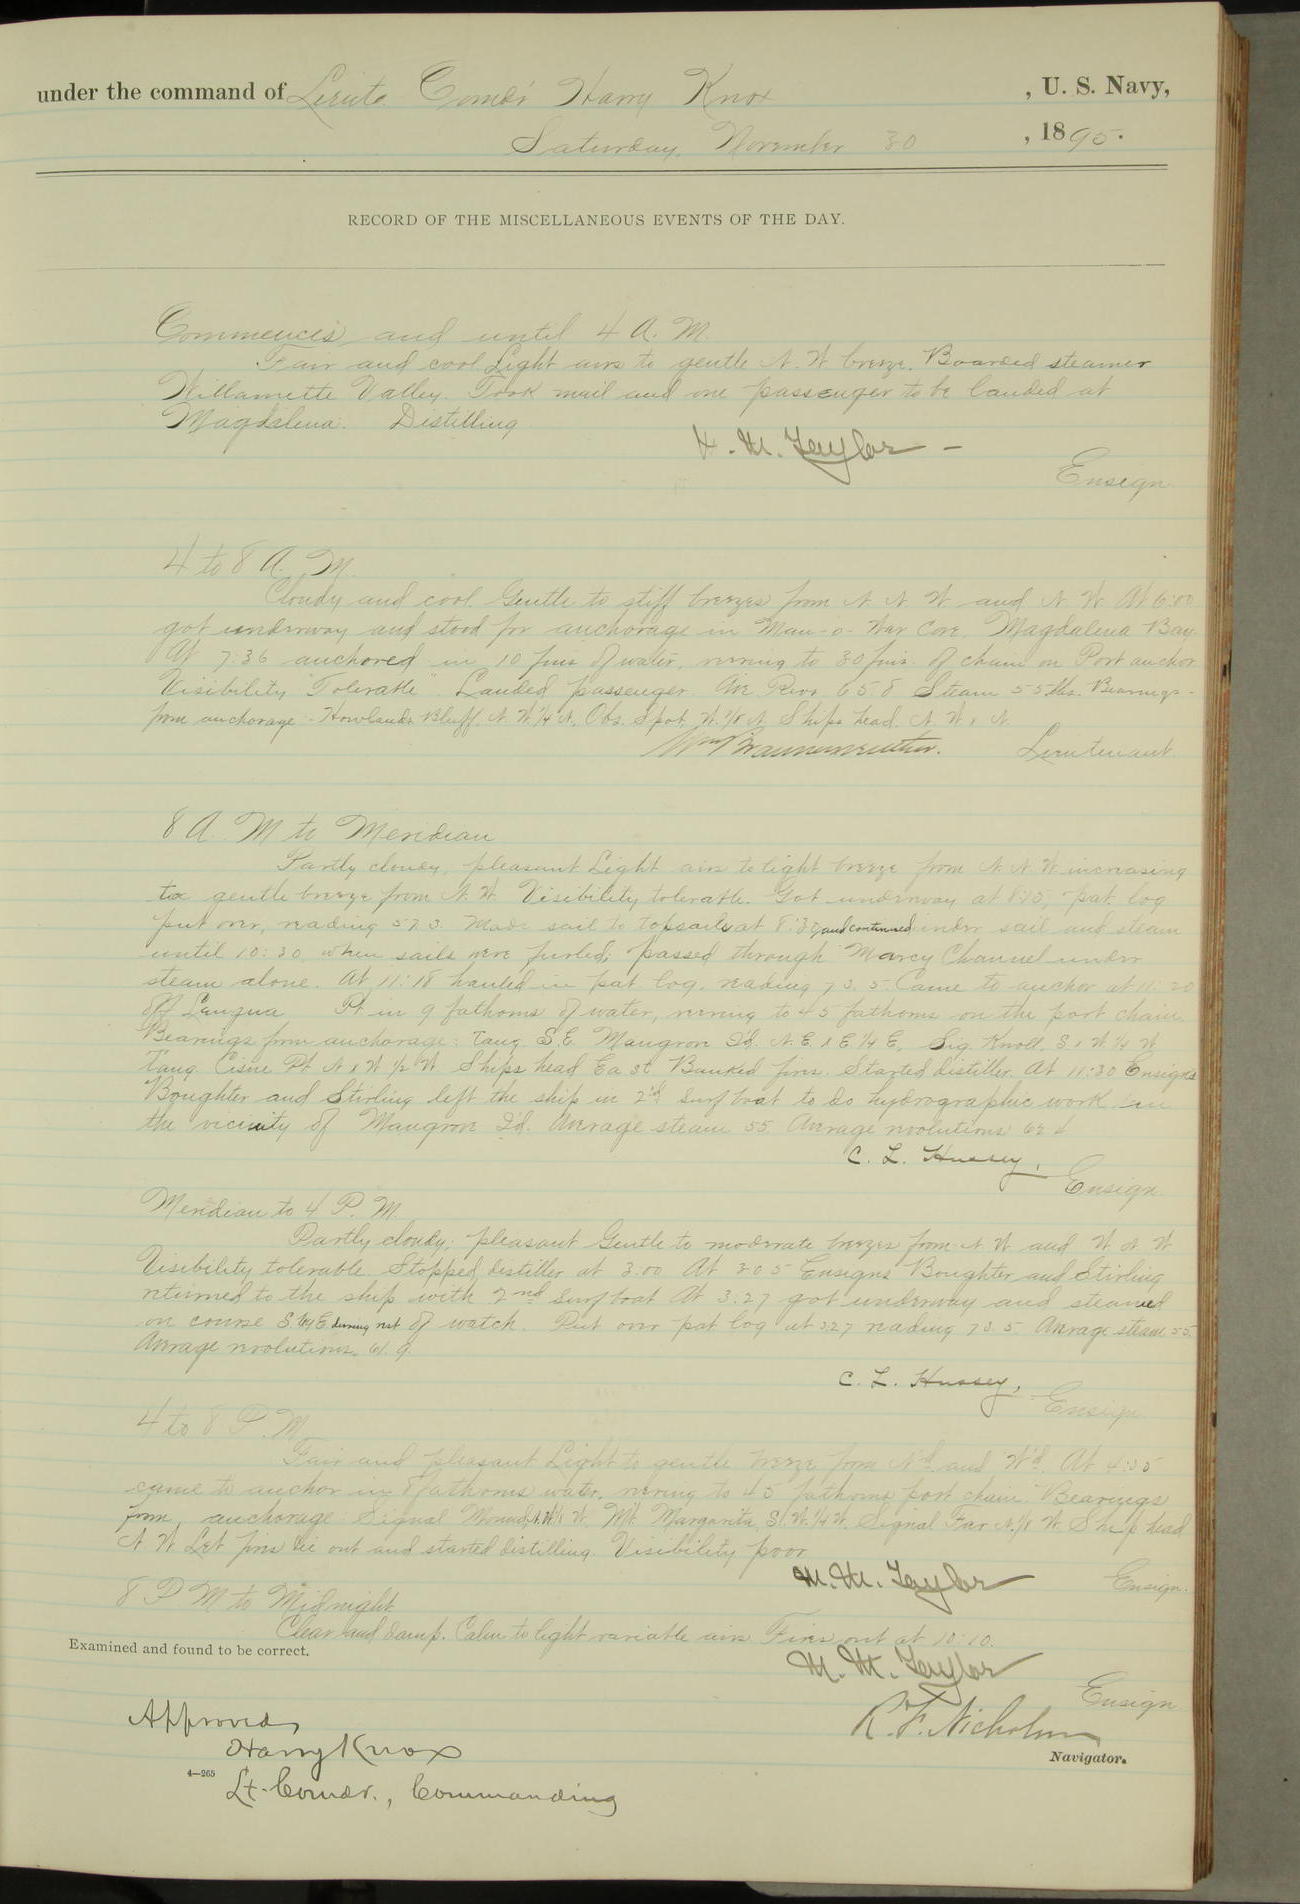 under the command of Lieut. Comdr Harry Knox, U. S. Navy,
Saturday, November 30, 1895.
RECORD OF THE MISCELLANEOUS EVENTS OF THE DAY.
Commences and until 4 A. M.
Fair and cool. Light airs to gentle N. W. breeze. Boarded steamer
Willamette Valley. Took mail and one passenger to be landed at
Magdalena. Distilling
M. M. Taylor -
Ensign.
4 to 8 A. M.
Cloudy and cool. Gentle to stiff breezes from N N W and N W. At 6:00
got underway and stood for anchorage in Man-o-War Cove, Magdalena Bay.
At 7:36 anchored in 10 fms of water, veering to 30 fms. of chain on Port anchor.
Visibility "Tolerable". Landed passenger. Ave. Revs. 65.8 Steam 55 lbs. Bearings -
from anchorage - Howlands Bluff, N. W. 1/4 N., Obs. Spot, W. 7/8 N. Ships head N. W. x N.
Wm Braunersreuther. Lieutenant
8 A. M to Meridian
Partly cloudy, pleasant. Light airs to light breeze from N. N. W. increasing
to gentle breeze from N. W. Visibility tolerable. Got underway at 8:15, pat. log
put over, reading 57.3. Made sail to topsails at 8:30 and continued under sail and steam
until 10:30, when sails were furled; passed through Marcy Channel under
steam alone. At 11:18 hauled in pat log, reading 73.5. Came to anchor at 11:20
off Lengua Pt in 9 fathoms of water, veering to 45 fathoms on the port chain.
Bearings from anchorage: Tang. S. E. Mangrove I'd. N. E. x E 1/4 E. Sig. Knoll. S. x W 1/4 W
Tang. Cisne Pt N x W 1/2 W Ships head East. Banked fires. Started distiller. At 11:30 Ensigns
Boughter and Stirling left the ship in 2'd surf boat to do hydrographic work in
the vicinity of Mangrove I'd. Average steam 55. Average revolutions 62
C. L. Hussey,
Ensign.
Meridian to 4 P. M.
Partly cloudy; pleasant. Gentle to moderate breezes from N W and W N W
Visibility tolerable. Stopped distiller at 3.00 At 3.05 Ensigns Boughter and Stirling
returned to the ship with 2nd surf boat At 3.27 got underway and steamed
on course S by E during rest of watch. Put over pat log at 3.27 reading 73.5. Average steam 55.
Average revolutions. 61.9.
C. L. Hussey,
Ensign
4 to 8 P. M.
Fair and pleasant Light to gentle breeze from N'd and W'd. At 4:35
came to anchor in 8 fathoms water, veering to 45 fathoms port chain. Bearings
from anchorage Signal Mound, Mt. Margarita, Signal Far Ship head
N W Let fires die out and started distilling. Visibility poor
M. M. Taylor
Ensign.
8 P M to Midnight
Clear and damp. Calm to light variable airs Fires out at 10:10.
Examined and found to be correct.
M. M. Taylor
Ensign
Approved,
R. F. Nicholson
Harry Knox
Navigator.
4—265
Lt. Comdr., Commanding